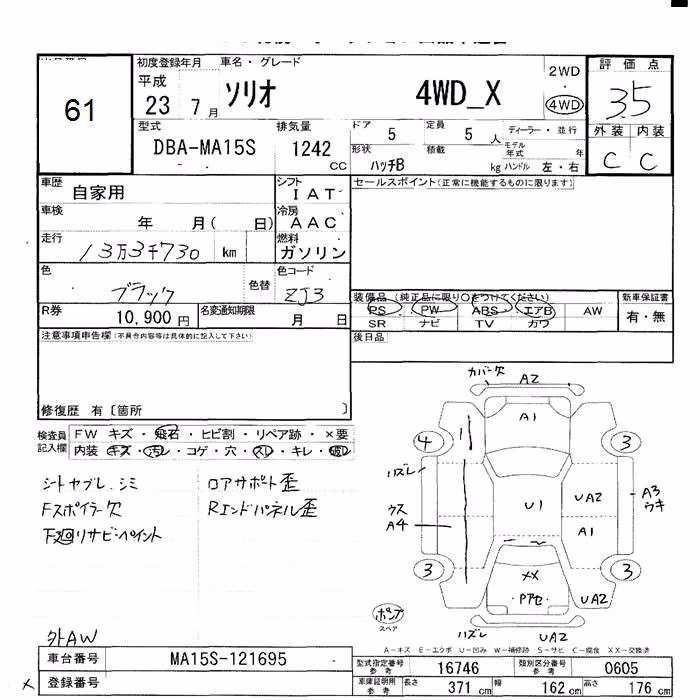 61
初度登録年月 車名・グレード
平成
23 7月 ソリオ 4WD_X
2WD
4WD
評価点
3.5
外装 内装
C C
型式 排気量
DBA-MA15S 1242 CC
ドア 5 定員 5 人 ディーラー・並行
形状 ハッチB 積載 kg
モデル年式 年
ハンドル 左・右
車歴 自家用
シフト IAT
車検 年 月( 日)
冷房 AAC
走行 13万3千730 km
燃料 ガソリン
色 ブラック 色替
色コード ZJ3
R券 10,900円 名変通知期限 月 日
セールスポイント(正常に機能するものに限ります)
装備品 (純正品に限り○をつけてください)
PS PW ABS エアB AW
SR ナビ TV カワ
新車保証書
有・無
後日品
注意事項申告欄(不具合内容等は具体的に記入して下さい)
修復歴 有〔箇所 〕
検査員記入欄
FW キズ・飛石・ヒビ割・リペア跡・×要
内装・キズ・汚レ・コゲ・穴・スレ・キレ・破レ
シートヤブレ.シミ ロアサポート歪
Fスポイラ欠 Rエンドパネル歪
下廻リサビ・ペイント
外AW
カバー欠 A2
A1
4 3
ハズレ
ウス
A4
U1 UA2
A3
ウキ
A1
3 3
XX
・Pアセ・
UA2
ハズレ UA2
スペア
A-キズ E-エクボ U-凹み W-補修跡 S-サビ C-腐食 XX-交換済
車台番号 MA15S-121695
登録番号
型式指定番号 参考 16746 類別区分番号 参考 0605
車庫証明用 参考 長さ 371cm 幅 162cm 高さ 176cm